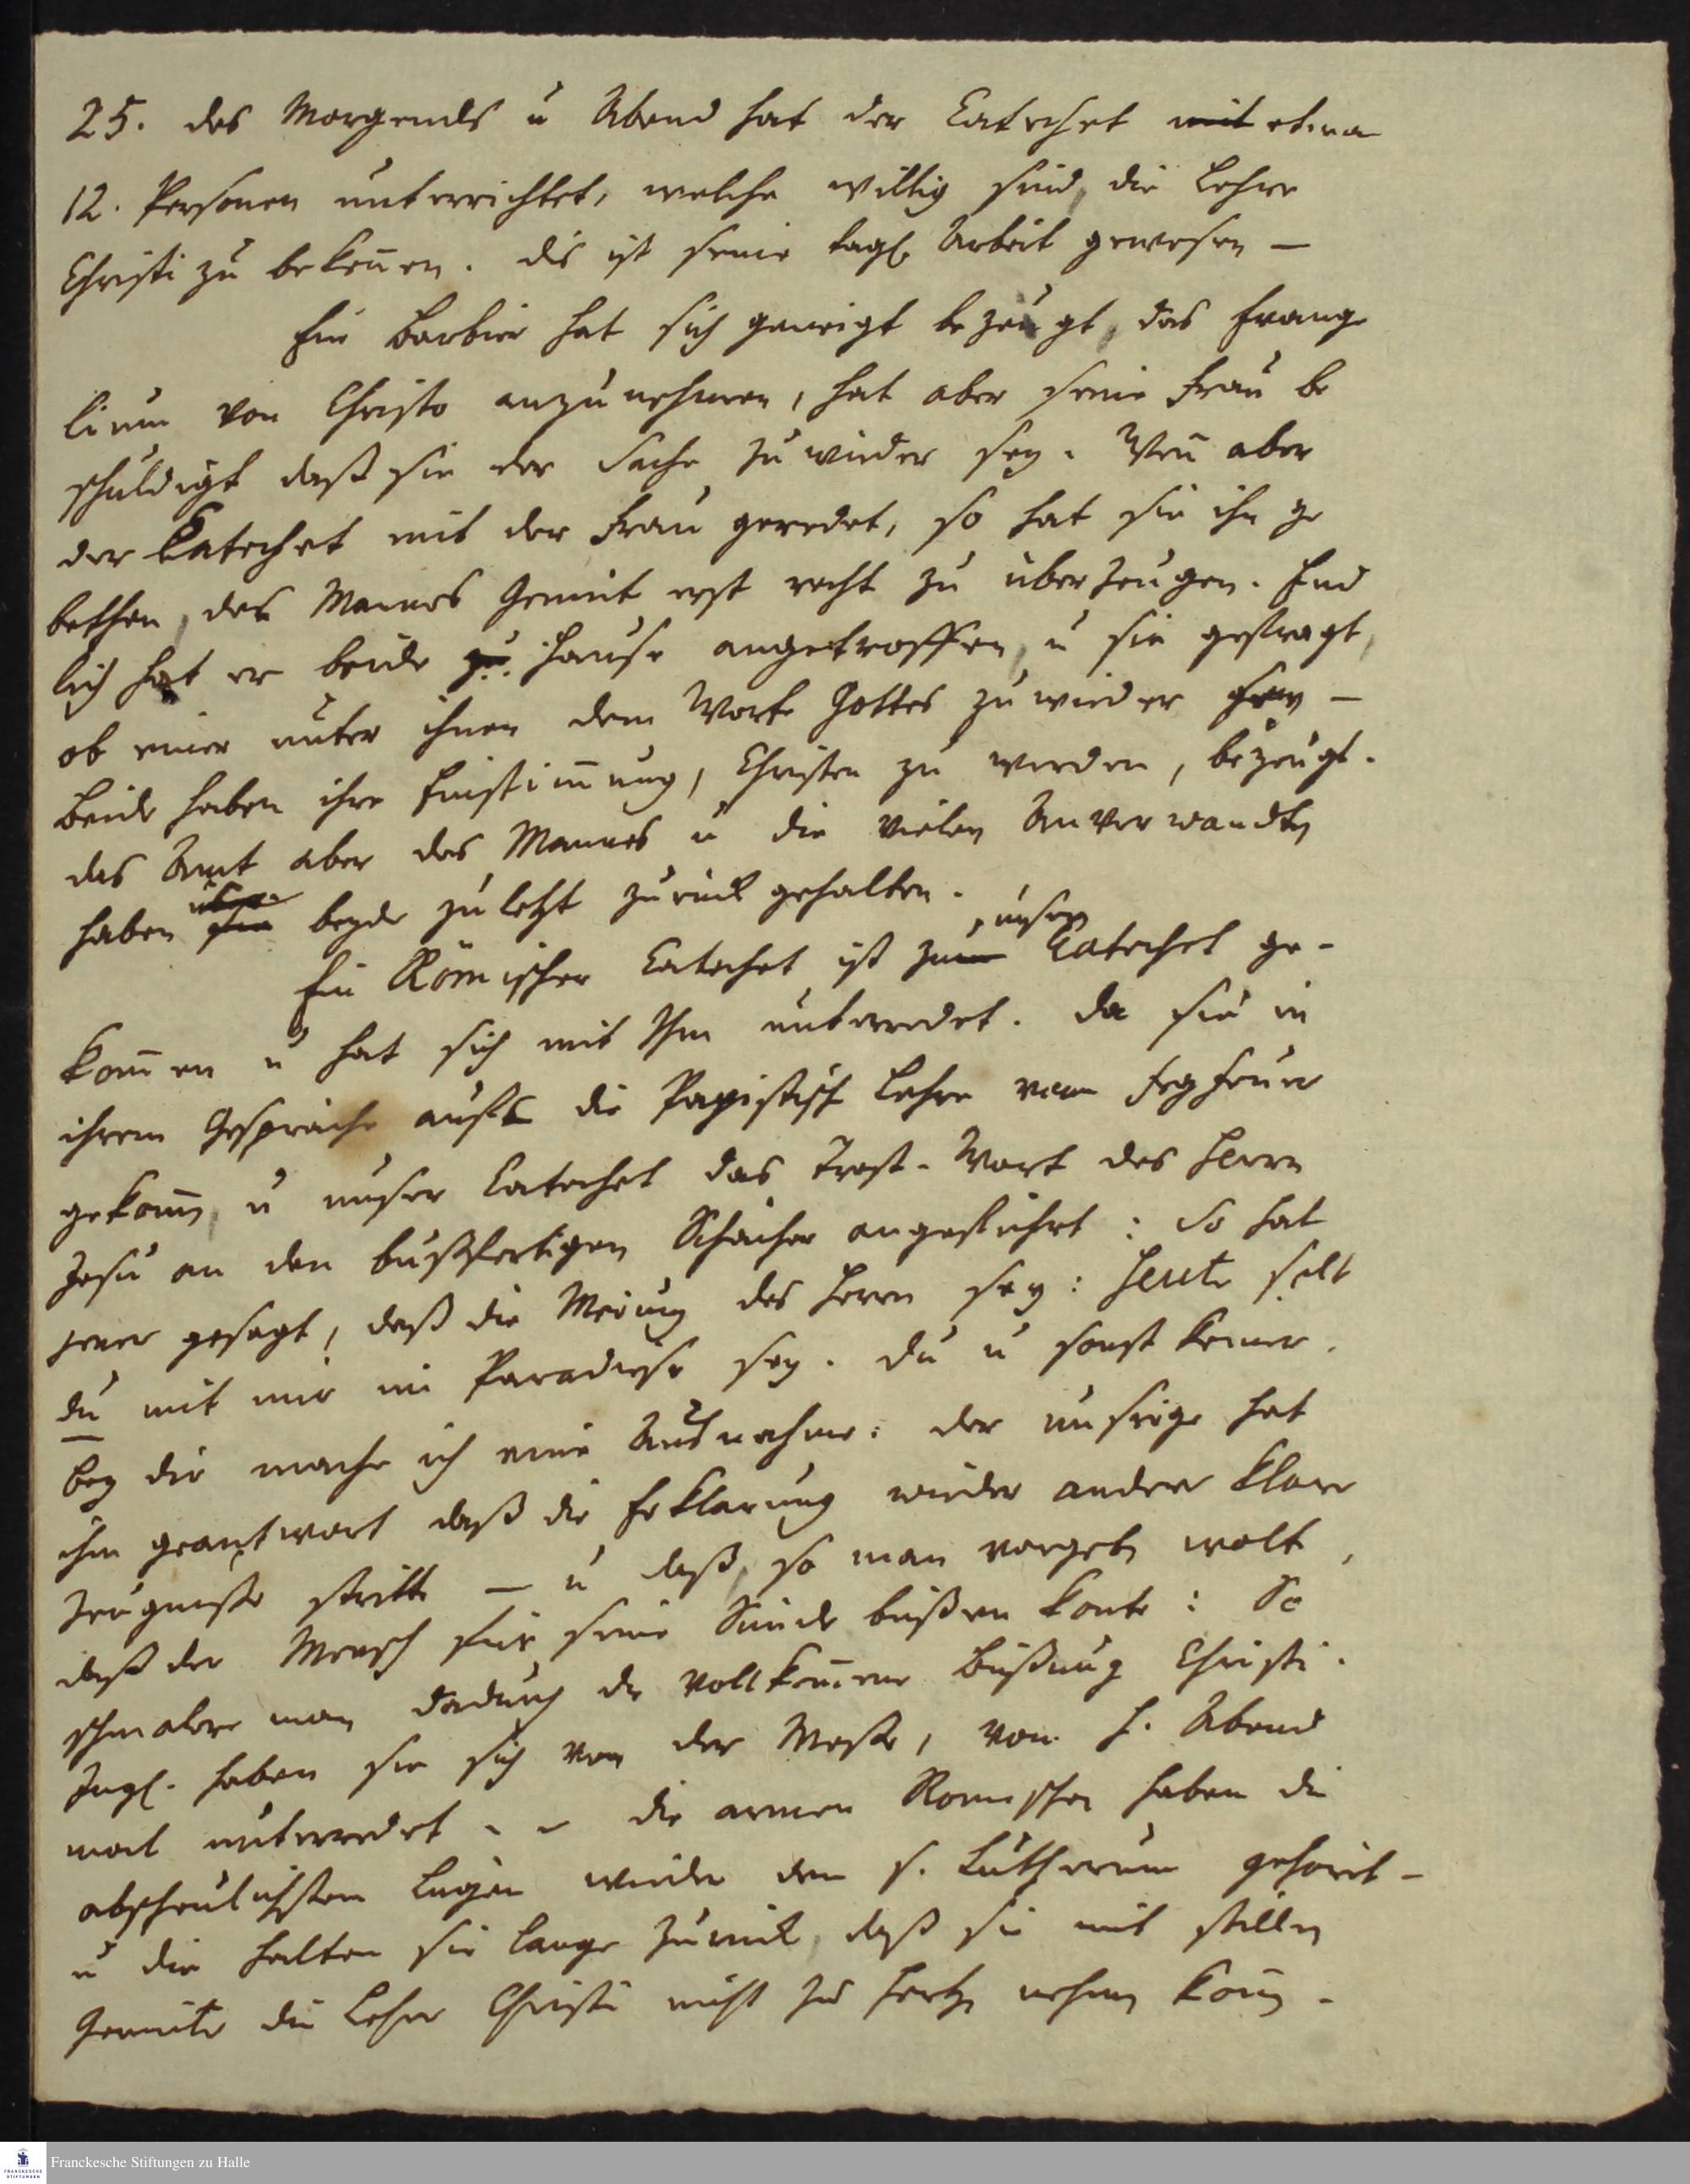 25. des Morgends u Abend hat der Catechet mit etwa
12. Personen unterrichtet, welche willig sind, die Lehre
Christi zu bekeñen. dis ist seine tägl. Arbeit gewesen —
Ein Barbier hat sich geneigt bezeugt, das Evange
lium von Christo anzunehmen, hat aber seine Frau be
schuldigt daß sie der Sache zuwieder sey. Weñ aber
der Catechet mit der Frau geredet, so hat sie ihn ge
bethen, des Mannes Gemüt erst recht zu überzeugen. End
lich hat er beide zu Hause angetroffen, u sie gefragt,
ob einer unter ihnen dem Worte Gottes zuwieder sey —
Beide haben ihre Einstim̃ung, Christen zu werden, bezeugt.
das Amt aber des Mannes u die vielen Anverwandten
haben sie beyde zuletzt zurück gehalten.
Ein Römischer Catechet ist zum unsern Catechet ge-
kom̃en u hat sich mit Ihm unterredet. da sie in
ihrem Gespräche auf die Papistisch Lehre vom Fegfeuer
gekom̃en, u unser Catechet das Trost-Wort des Herrn
Jesu an den bußfertigen Schächer angeführt: So hat
jener gesagt, daß die Meinung des Herrn sey: Heute solt
du mit mir im Paradiese sey. du u sonst keiner.
bey dir mache ich eine Ausnahme: der unsrige hat
ihm geantwort daß die Erklärung wieder andere klare
Zeugniße stritte — u daß, so man vorgeben wolt,
daß der Mensch für seine Sünde büßen konte: So
schmälere man dadurch die vollkom̃ene Büßung Christi.
Ingl. haben sie sich von der Messe, vom H. Abend
mal unterredet - - die armen Römischen haben die
abscheulichsten Lügen wieder den s. Lutherum gehört -
u die halten sie lange zurück, daß sie mit stillen
Gemüte die Lehre Christi nicht zu Hertzen nehmen köñen.
Franckesche Stiftungen zu Halle